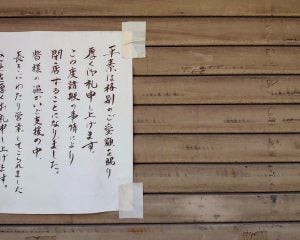 平素は格別のご愛顧を賜り
厚く御礼申し上げます。
この度諸般の事情により
閉店することになりました。
皆様の温かいご支援の中
長きにわたり営業してこられました
厚く御礼申し上げます。